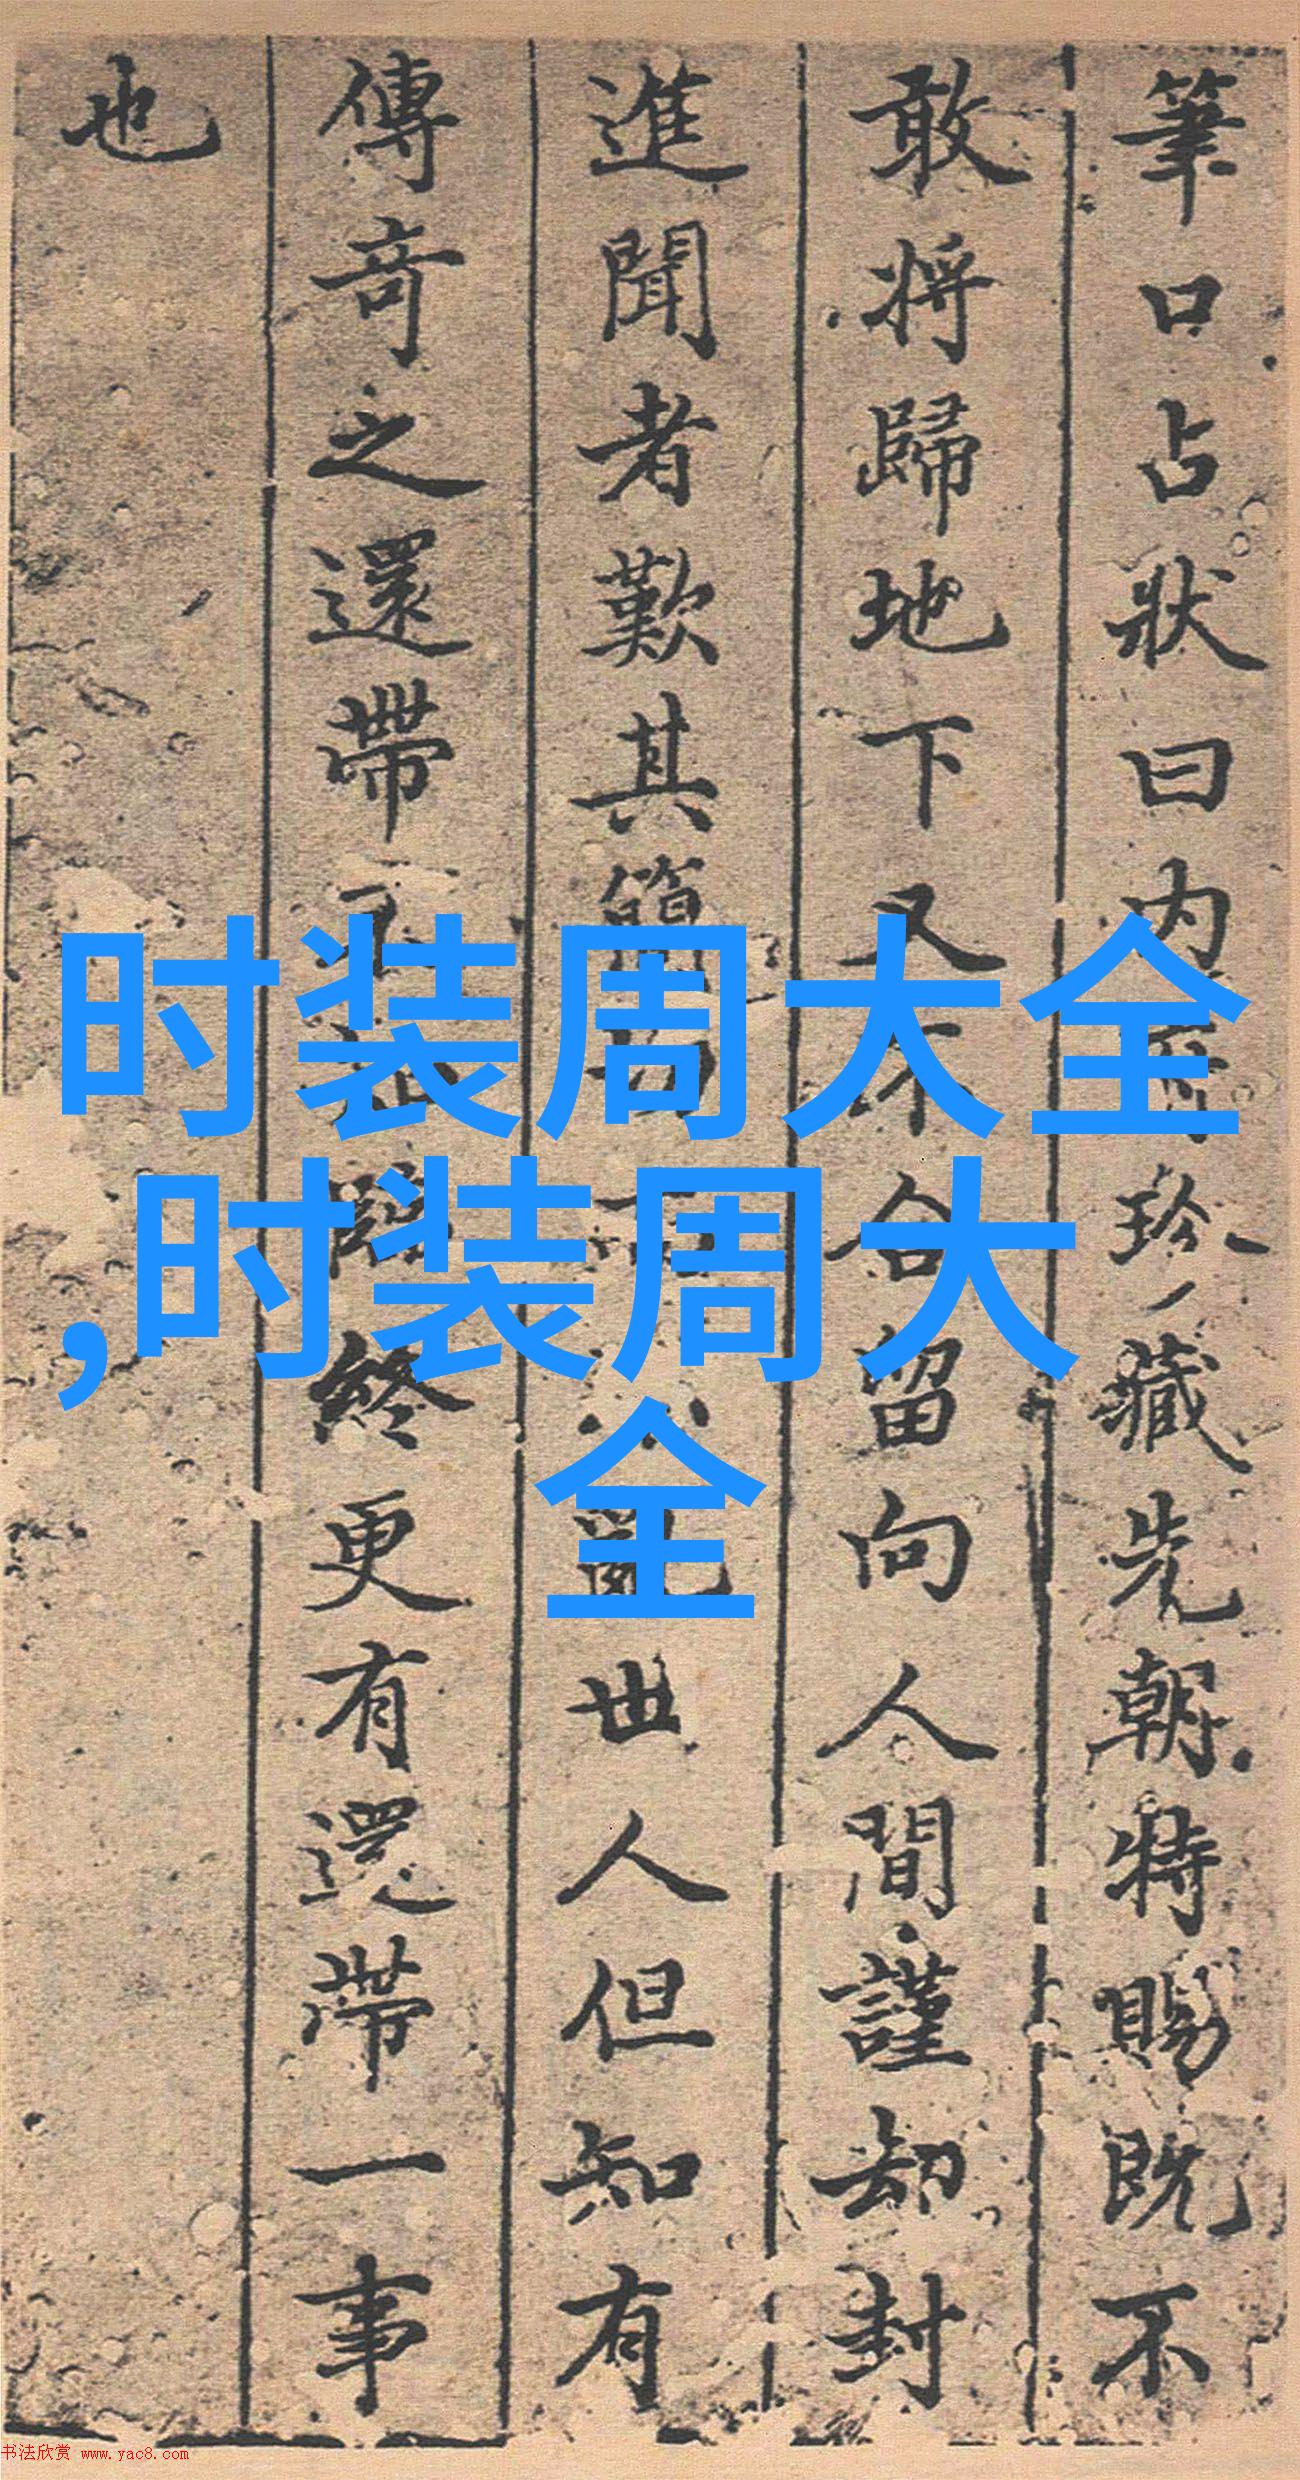 筆口占狀曰内珍藏先朝特賜既不
敢將歸地下又不合留向人間謹却封
進聞者歎其簡世人但知有
傳奇之還帶終更有還帶一事
也
时装周大全
,时装周大
全
书法欣赏 www.yac8.com